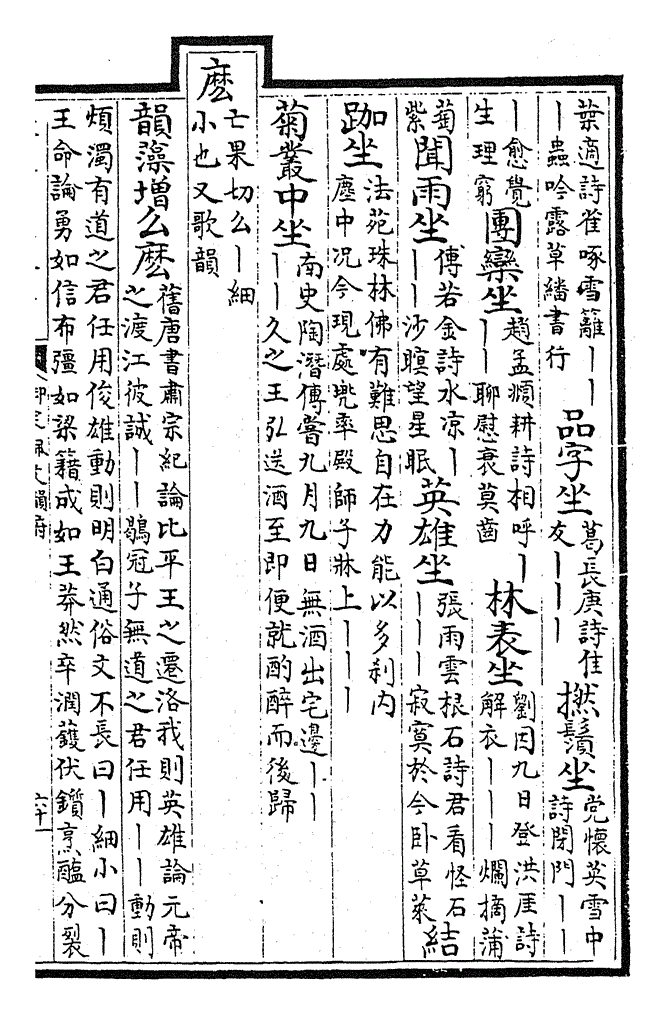 葉適詩雀啄雪籬丨丨
丨蟲吟露草繙書行
品字坐
葛長庚詩隹
友丨丨丨
撚鬚坐
党懷英雪中
詩閉門丨丨
丨愈覺
生理窮
團欒坐
趙孟頫耕詩相呼丨
丨丨聊慰衰莫齒
林表坐
劉因九日登洪厓詩
解衣丨丨丨爛摘蒲
萄
紫
聞雨坐
傅若金詩水凉丨
丨丨沙暝望星眠
英雄坐
張雨雲根石詩君看怪石
丨丨丨寂寞於今卧草萊
結
跏坐
法苑珠林佛有難思自在力能以多刹内
塵中况今現處兜率殿師子牀上丨丨丨
菊叢中坐
南史陶潛傳嘗九月九日無酒出宅邊丨丨
丨丨久之王弘送酒至即便就酌醉而後歸
麽
亡果切么丨細
小也又歌韻
韻藻增么麽
舊唐書肅宗紀論比平王之遷洛我則英雄論元帝
之渡江彼誠丨丨鶡冠子無道之君任用丨丨動則
煩濁有道之君任用俊雄動則明白通俗文不長曰丨細小曰丨
王命論勇如信布彊如梁籍成如王莽然卒潤鑊伏鑕烹醢分裂
六十一